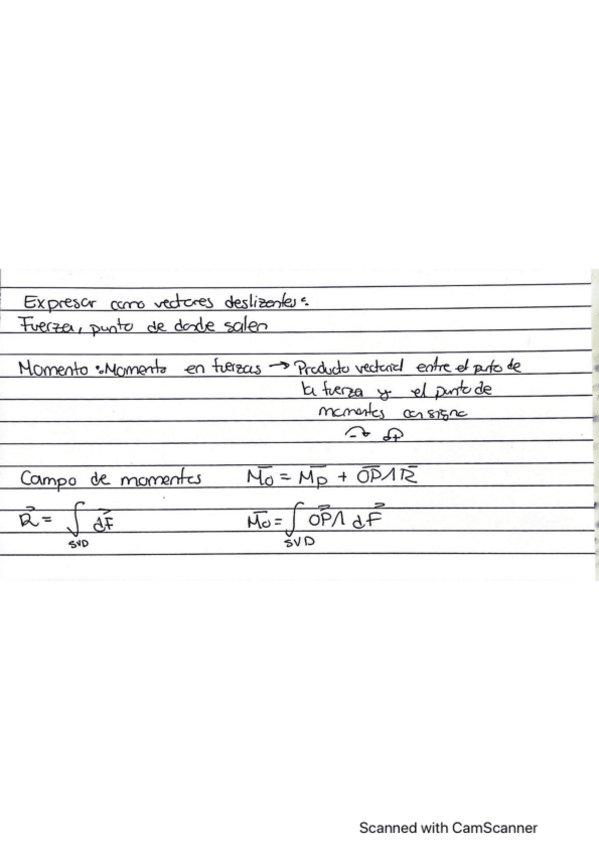 Expresar como vectores deslizantes:
Fuerza, punto de donde salen
Momento: Momento en fuerzas → Producto vectorial entre el punto de
la fuerza y el punto de
momentos con signo
Campo de momentes M̅o = M̅p + O̅P̅ Λ R̅
R⃗ = ∫ dF⃗ M̅o = ∫ OP⃗ Λ dF⃗
SVD SVD
Scanned with CamScanner